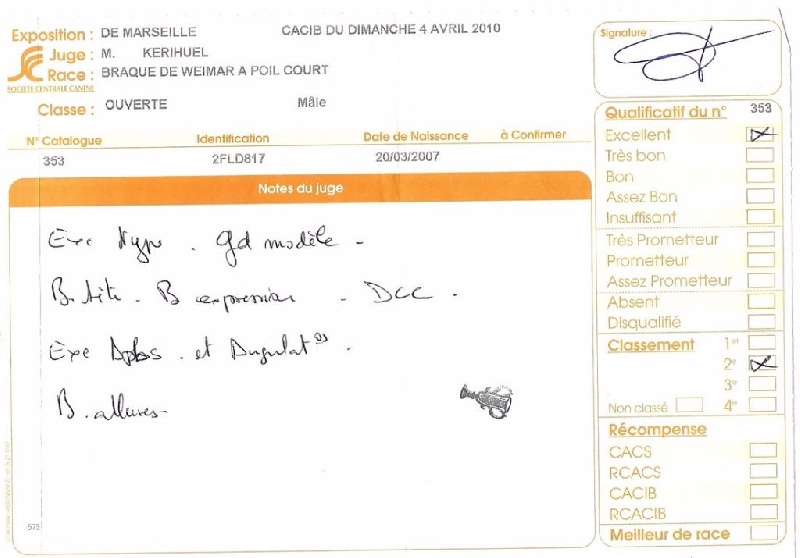 Exposition : DE MARSEILLE CACIB DU DIMANCHE 4 AVRIL 2010
Juge : M. KERIHUEL
Race : BRAQUE DE WEIMAR A POIL COURT
SOCIÉTÉ CENTRALE CANINE
Classe : OUVERTE Mâle
N° Catalogue Identification Date de Naissance à Confirmer
353 2FLD817 20/03/2007
Notes du juge
Exc type . gd modèle -
B. tête - B expression - DCC .
Exc Aplbs . et Angulat°s .
B. allures
573
Signature :
Qualificatif du n° 353
Excellent
Très bon
Bon
Assez Bon
Insuffisant
Très Prometteur
Prometteur
Assez Prometteur
Absent
Disqualifié
Classement 1er
2e
3e
Non classé 4e
Récompense
CACS
RCACS
CACIB
RCACIB
Meilleur de race